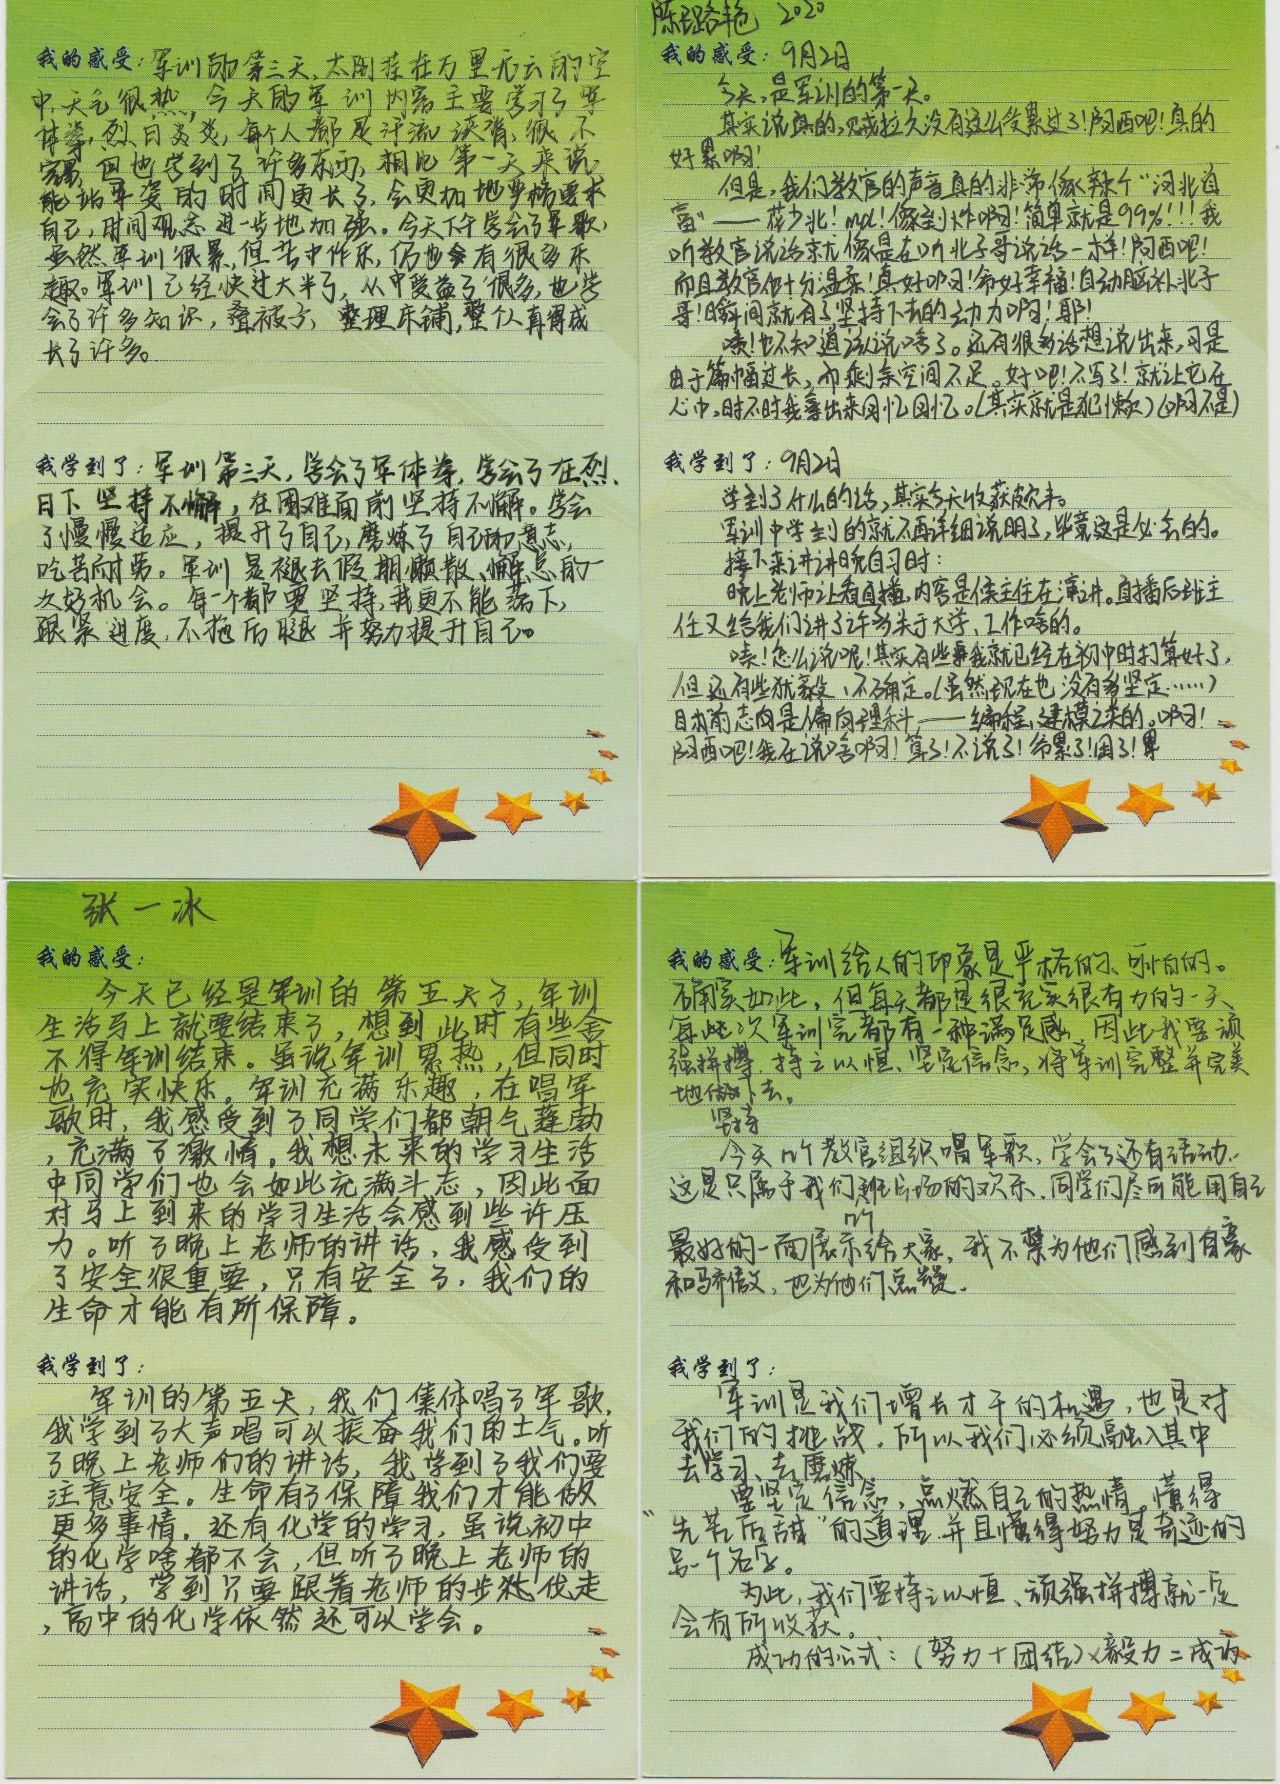 我的感受：军训的第三天，太阳挂在万里无云的空
中，天气很热，今天的军训内容主要学习了军
体拳，烈日炎炎，每个人都是汗流浃背，很不
容易，但也学到了许多东西，相比第一天来说，
能站军姿的时间更长了，会更加地严格要求
自己，时间观念进一步地加强。今天下午学会了军歌，
虽然军训很累，但苦中作乐，仍也会有很多乐
趣。军训已经快过大半了，从中受益了很多，也学
会了许多知识，叠被子，整理床铺，整个人真得成
长了许多。
我学到了：军训第三天，学会了军体拳，学会了在烈
日下坚持不懈，在困难面前坚持不懈。学会
了慢慢适应，提升了自己，磨炼了自己的意志，
吃苦耐劳。军训是褪去假期懒散、懈怠的一
次好机会。每一个都要坚持，我更不能落下，
跟紧进度，不拖后腿并努力提升自己。
2020
我的感受：9月2日
今天，是军训的第一天。
其实说真的，贼拉久没有这么受累过了！阿西吧！真的
好累啊！
但是，我们教官的声音真的非常像辣个“河北首
富”——花少北！mua！像到炸啊！简单就是99%！！！我
听教官说话就像是在听北子哥说话一样！阿西吧！
而且教官他十分温柔！真好啊！命好幸福！自动脑补北子
哥！瞬间就有了坚持下去的动力啊！耶！
唉！也不知道该说啥了。还有很多话想说出来，可是
由于篇幅过长，而剩余空间不足。好吧！不写了！就让它在
心中，时不时我拿出来回忆回忆。（其实就是犯懒）（啊不是）
我学到了：9月2日
学到了什么的话，其实今天收获颇丰。
军训中学到的就不再详细说明了，毕竟这是必会的。
接下来讲讲晚自习时：
晚上老师让看直播，内容是侯主任在演讲。直播后班主
任又给我们讲了许多关于大学、工作啥的。
唉！怎么说呢！其实有些事我就已经在初中时打算好了，
但还有些犹豫、不确定。（虽然现在也没有多坚定……）
目前志向是偏向理科——编程、建模之类的。啊！
阿西吧！我在说啥啊！算了！不说了！命累了！困了！累
张一冰
我的感受：
今天已经是军训的第五天了，军训
生活马上就要结束了，想到此时有些舍
不得军训结束。虽说军训累热，但同时
也充实快乐。军训充满乐趣，在唱军
歌时，我感受到了同学们都朝气蓬勃
，充满了激情。我想未来的学习生活
中同学们也会如此充满斗志，因此面
对马上到来的学习生活会感到些许压
力。听了晚上老师的讲话，我感受到
了安全很重要，只有安全了，我们的
生命才能有所保障。
我学到了：
军训的第五天，我们集体唱了军歌，
我学到了大声唱可以振奋我们的士气。听
了晚上老师们的讲话，我学到了我们要
注意安全。生命有了保障我们才能做
更多事情。还有化学的学习，虽说初中
的化学啥都不会，但听了晚上老师的
讲话，学到只要跟着老师的步伐走
，高中的化学依然还可以学会。
我的感受：军训给人的印象是严格的、可怕的。
不确实如此，但每天都是很充实很有力的一天
每此次军训完都有一种满足感，因此我要顽
强拼搏，持之以恒、坚定信念，将军训完整并完美
地做下去。
坚持
今天 教官组织唱军歌，学会了还有活动，
这是只属于我们班 场的欢乐，同学们尽可能用自己
最好的一面展示给大家，我不禁为他们感到自豪
和骄傲，也为他们点赞。
我学到了：
军训是我们增长才干的机遇，也是对
我们的挑战，所以我们必须融入其中
去学习、去磨炼
要坚定信念，点燃自己的热情。懂得
“先苦后甜”的道理，并且懂得努力是奇迹的
另一个名字。
为此，我们要持之以恒、顽强拼搏就一定
会有所收获。
成功的公式：（努力＋团结）×毅力＝成功